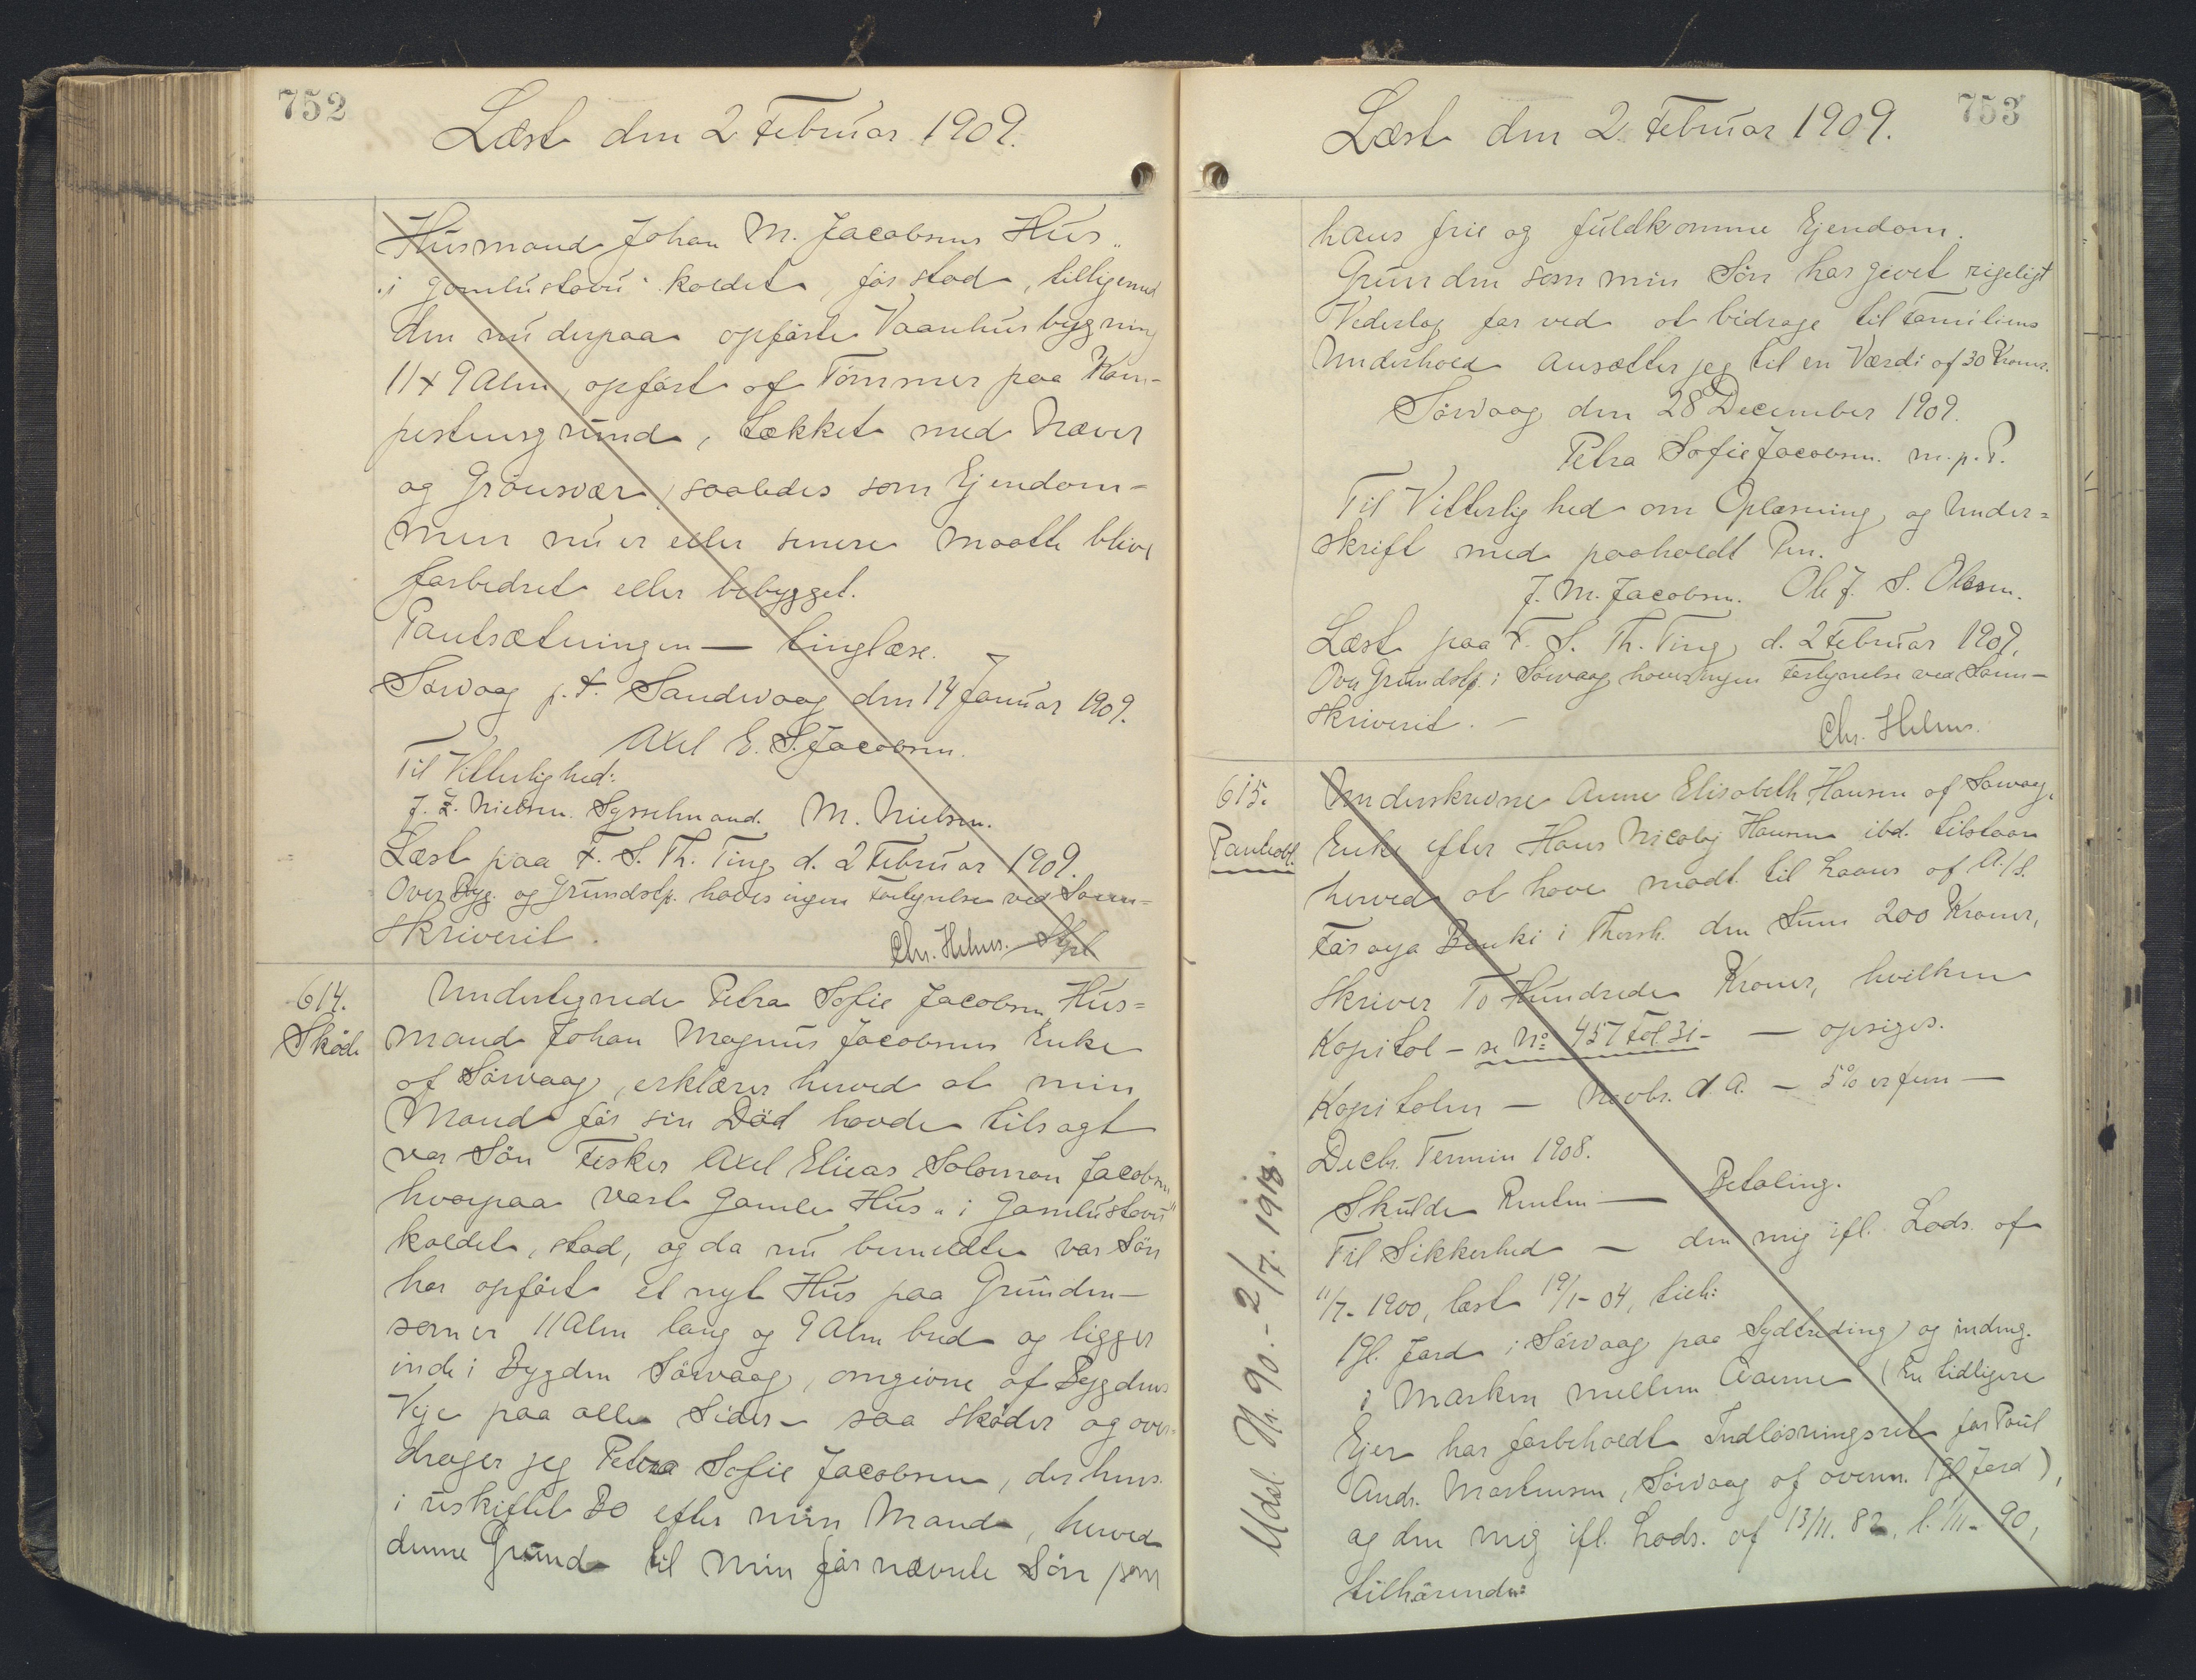 752
Læst den 2 Februar 1909.
Husmand Johan M. Jacobsens Hus
"i Gomlustovu" kaldet, før stod, tilligemed
den nu derpaa opførte Vaanhusbygning
11 x 9 Alen, opført af Tømmer paa Kam-
pestensgrund, tækket med Næver
og Grönsvær, saaledes som Ejendom-
men nu er eller senere maatte blive
forbedret eller bebygget.
Pantsætningen — tinglæse.
Sørvaag p.t. Sandevaag den 14 Januar 1909.
Axel E. S. Jacobsen.
Til Vitterlighed:
J. Z. Nielsen. Sysselmand. M. Nielsen.
Læst paa F. S. Th. Ting d. 2 Februar 1909.
Over Byg. og Grundstp. haves ingen Forlynelse ved Soren-
skriveriet.
Chr. Helms.
614.
Sköde
Undertegnede Petra Sofie Jacobsen, Hus=
mand Johan Magnus Jacobsens Enke
af Sörvaag, erklærer herved at min
Mand før sin Död havde tilsagt
vor Sön Fisker Axel Elieas Solomon Jacobsen
hvorpaa vort gamle Hus "i Gamlustovu"
kaldet, stod, og da nu bemeldte vor Sön
har opført et nyt Hus paa Grunden —
som er 11 Alen lang og 9 Alen bred og ligger
inde i Bygden Sörvaag, omgivne af Bygdens
Veje paa alle Sider — saa sköder og over=
drager jeg Petra Sofie Jacobsen, der hens.
i uskiftet Bo efter min Mand, herved
denne Grund til min førnævnte Sön som
753
Læst den 2 Februar 1909.
hans frie og fuldkomne Ejendom.
Grunden som min Sön har givet rigeligt
Vederlag for ved at bidrage til Familiens
Underhold ansætter jeg til en Værdi af 30 Kroner.
Sörvaag den 28 December 1909.
Petra Sofie Jacobsen. m.p.P.
Til Vitterlighed om Oplæsning og Under=
skrift med paaholdt Pen.
J. M. Jacobsen. Ole J. S. Olesen.
Læst paa F. S. Th. Ting d. 2 Februar 1909.
Over Grundstp. i Sörvaag haves ingen Forlynelse ved Soren-
skriveriet. —
Chr. Helms.
615.
Pantobl.
Underskrevne Anne Elisabeth Hansen af Sørvaag,
Enke efter Hans Nicolaj Hansen ibd. tilstaar
herved at have modt. til Laans af A./S.
Föroya Banki i Thorsh. den Sum 200 Kroner,
skriver To Hundrede Kroner, hvilken
Kapital — se No 457 Fol 31 — — opsiges.
Kapitalen — Novbr. d. A. — 5% er fem —
Decbr. Termin 1908.
Skulde Renten — Betaling.
Til Sikkerhed — den mig ifl. Lods. af
11/7 - 1900, læst 19/1 - 04, tilh:
1 gl. Jord i Sørvaag paa Sydtreding og indeng.
i Marken mellem Aaerne (En tidligere
Ejer har forbeholdt Indlösningsret for Poul
Andr. Martensen, Sörvaag af ovenn. 1 gl Jord),
og den mig ifl. Lods. af 13/11. 82, l. 1/11 - 90,
tilhörende:
Udsl. Nr. 90. - 2/7. 1918.